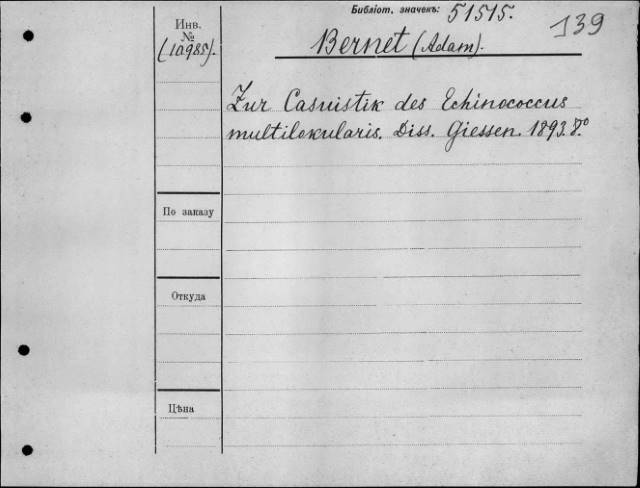 Библіот. значекъ: 51515.
139
Инв.
№
(10985).
Bernet (Adam).
Zur Casuistik des Echinococcus
multilokularis. Diss. Giessen. 1893. 8.°
По заказу
Откуда
Цѣна